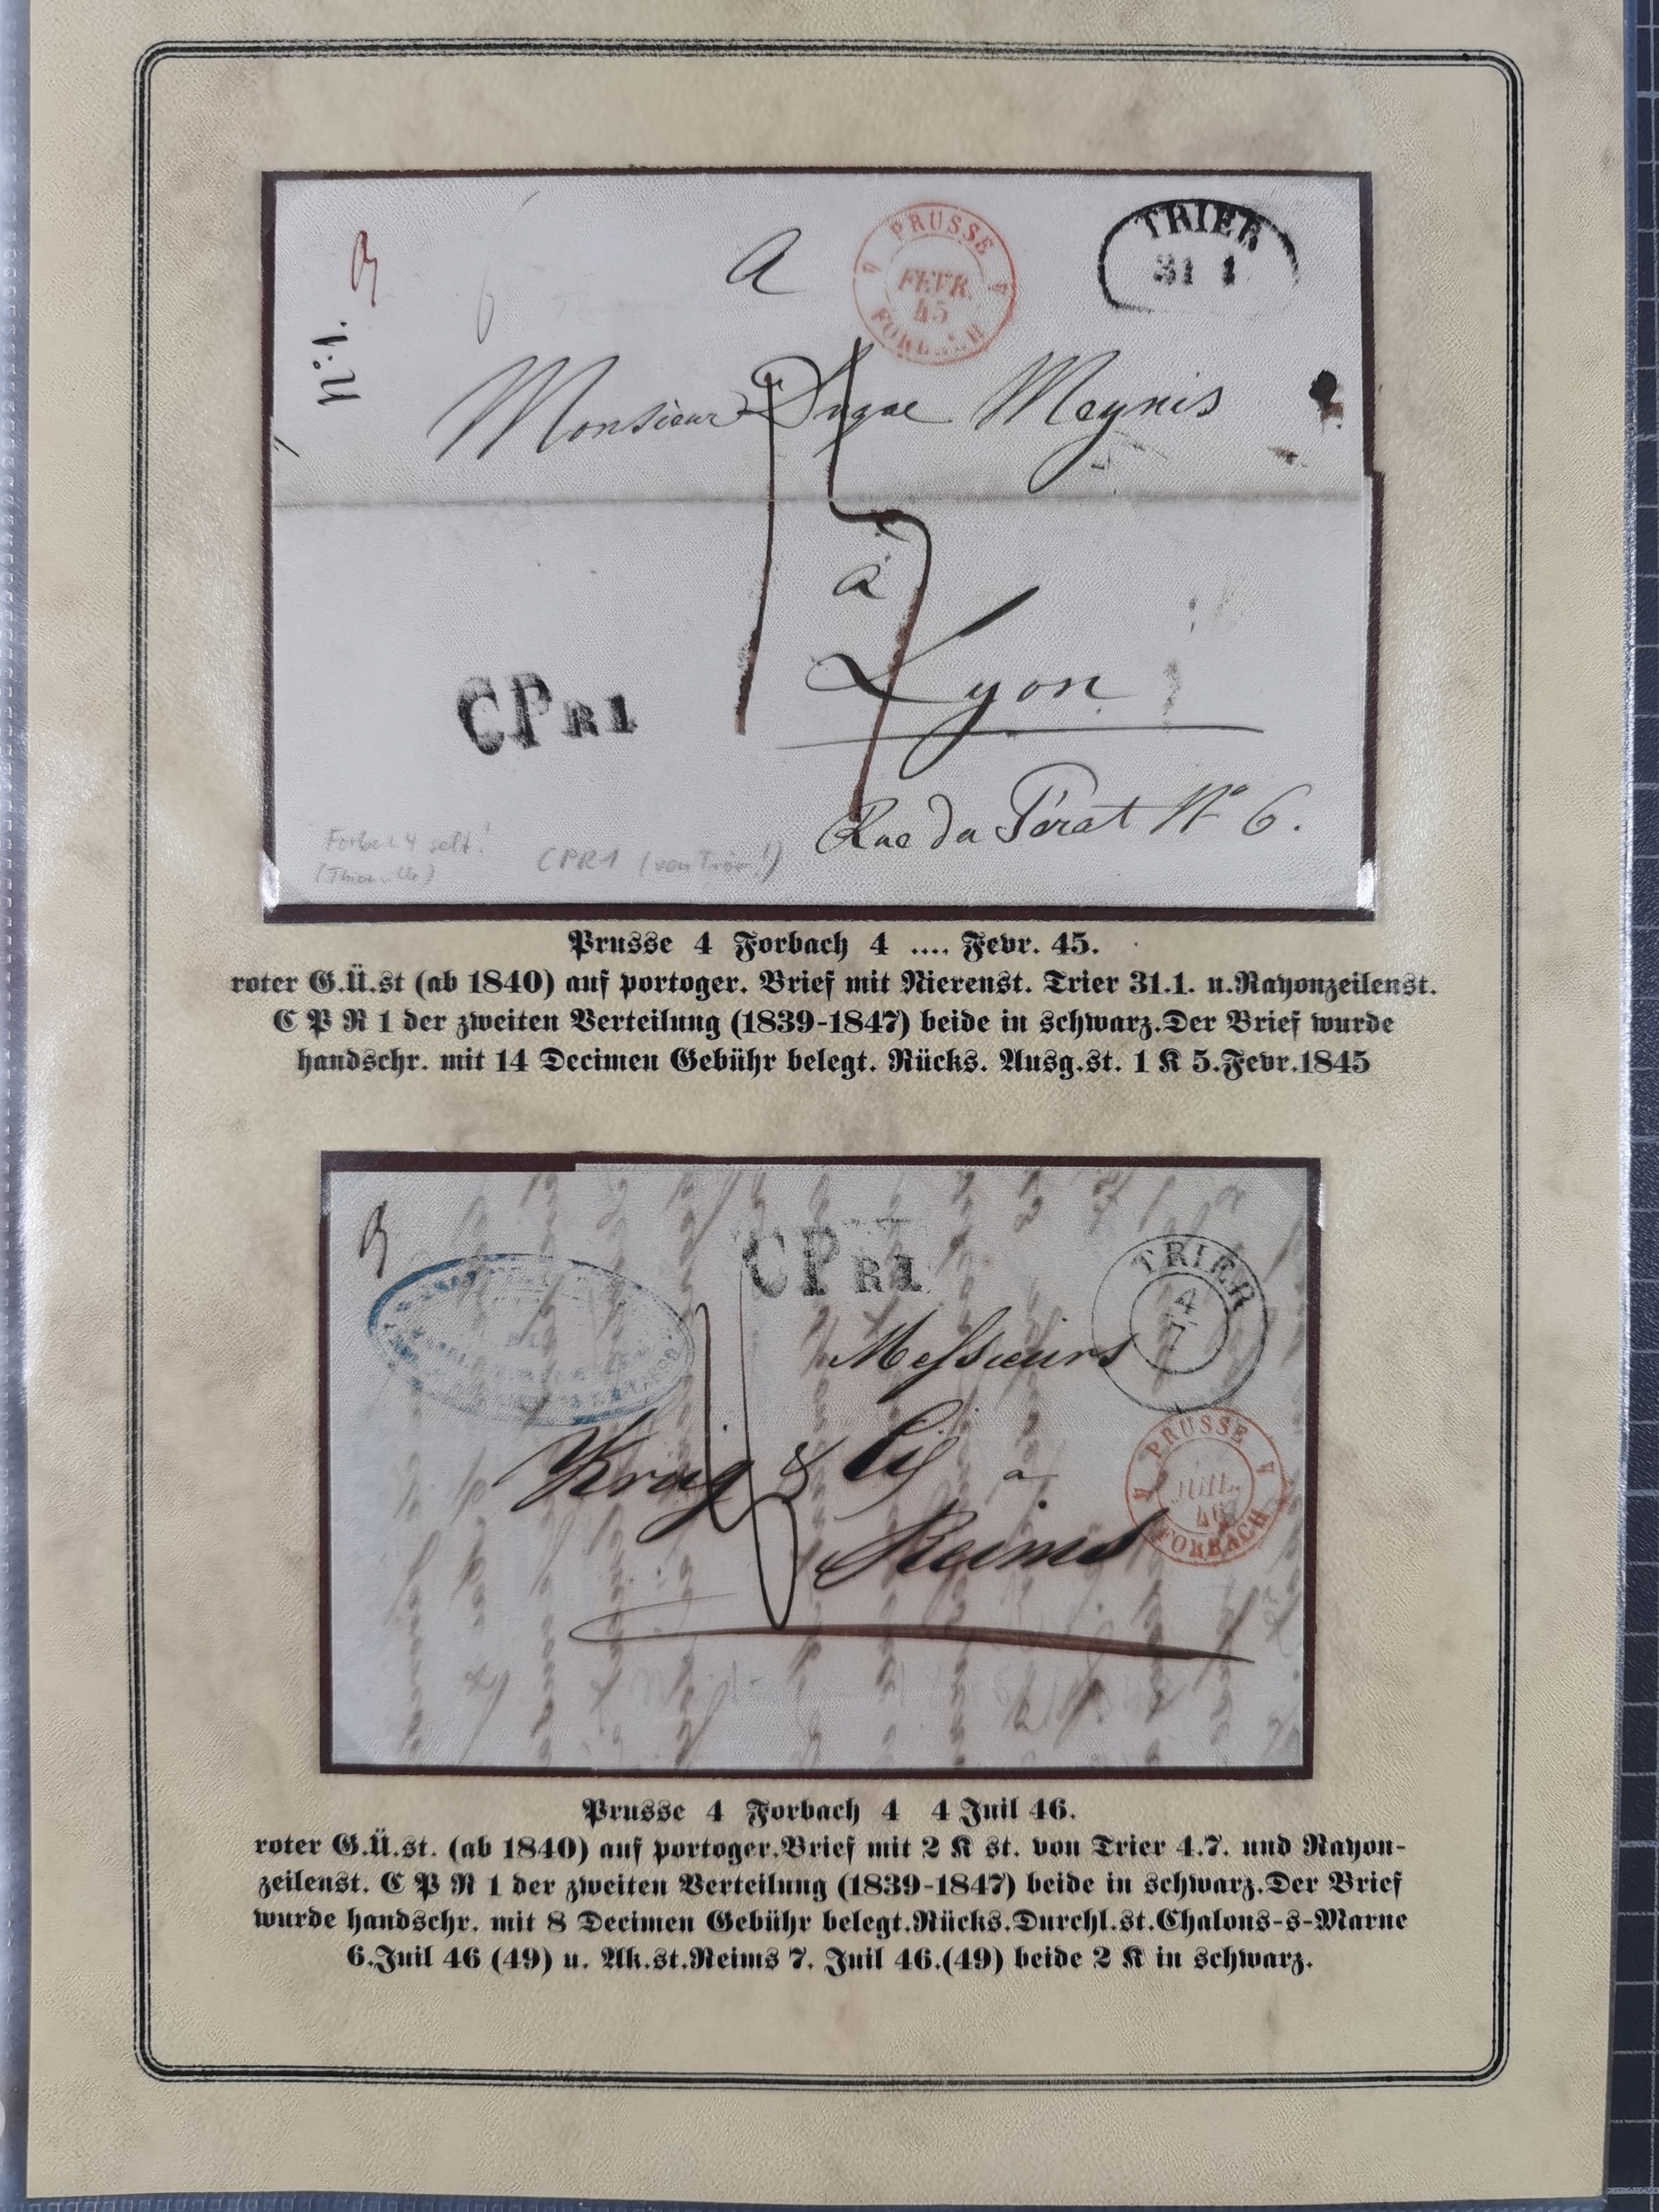 a
PRUSSE
4 4
FEVR.
45
FORBACH
TRIER
31 1
N: 1.
Monsieur Dugae Meynis
a
Lyon
CPR1
Rue du Perat N° 6.
Forbach 4 selt!
(Thionville)
CPR1 (von Trier!)
Prusse 4 Forbach 4 .... Fevr. 45.
roter G.Ü.st (ab 1840) auf portoger. Brief mit Nierenst. Trier 31.1. u.Rayonzeilenst.
C P R 1 der zweiten Verteilung (1839-1847) beide in schwarz.Der Brief wurde
handschr. mit 14 Decimen Gebühr belegt. Rücks. Ausg.st. 1 K 5.Fevr.1845
CPR1
TRIER
4
7
Messieurs
Krug & Cie a
Reims
PRUSSE
4 4
JUIL.
46
FORBACH
Prusse 4 Forbach 4 4 Juil 46.
roter G.Ü.st. (ab 1840) auf portoger.Brief mit 2 K st. von Trier 4.7. und Rayon-
zeilenst. C P R 1 der zweiten Verteilung (1839-1847) beide in schwarz.Der Brief
wurde handschr. mit 8 Decimen Gebühr belegt.Rücks.Durchl.st.Chalons-s-Marne
6.Juil 46 (49) u. Ak.st.Reims 7. Juil 46.(49) beide 2 K in schwarz.